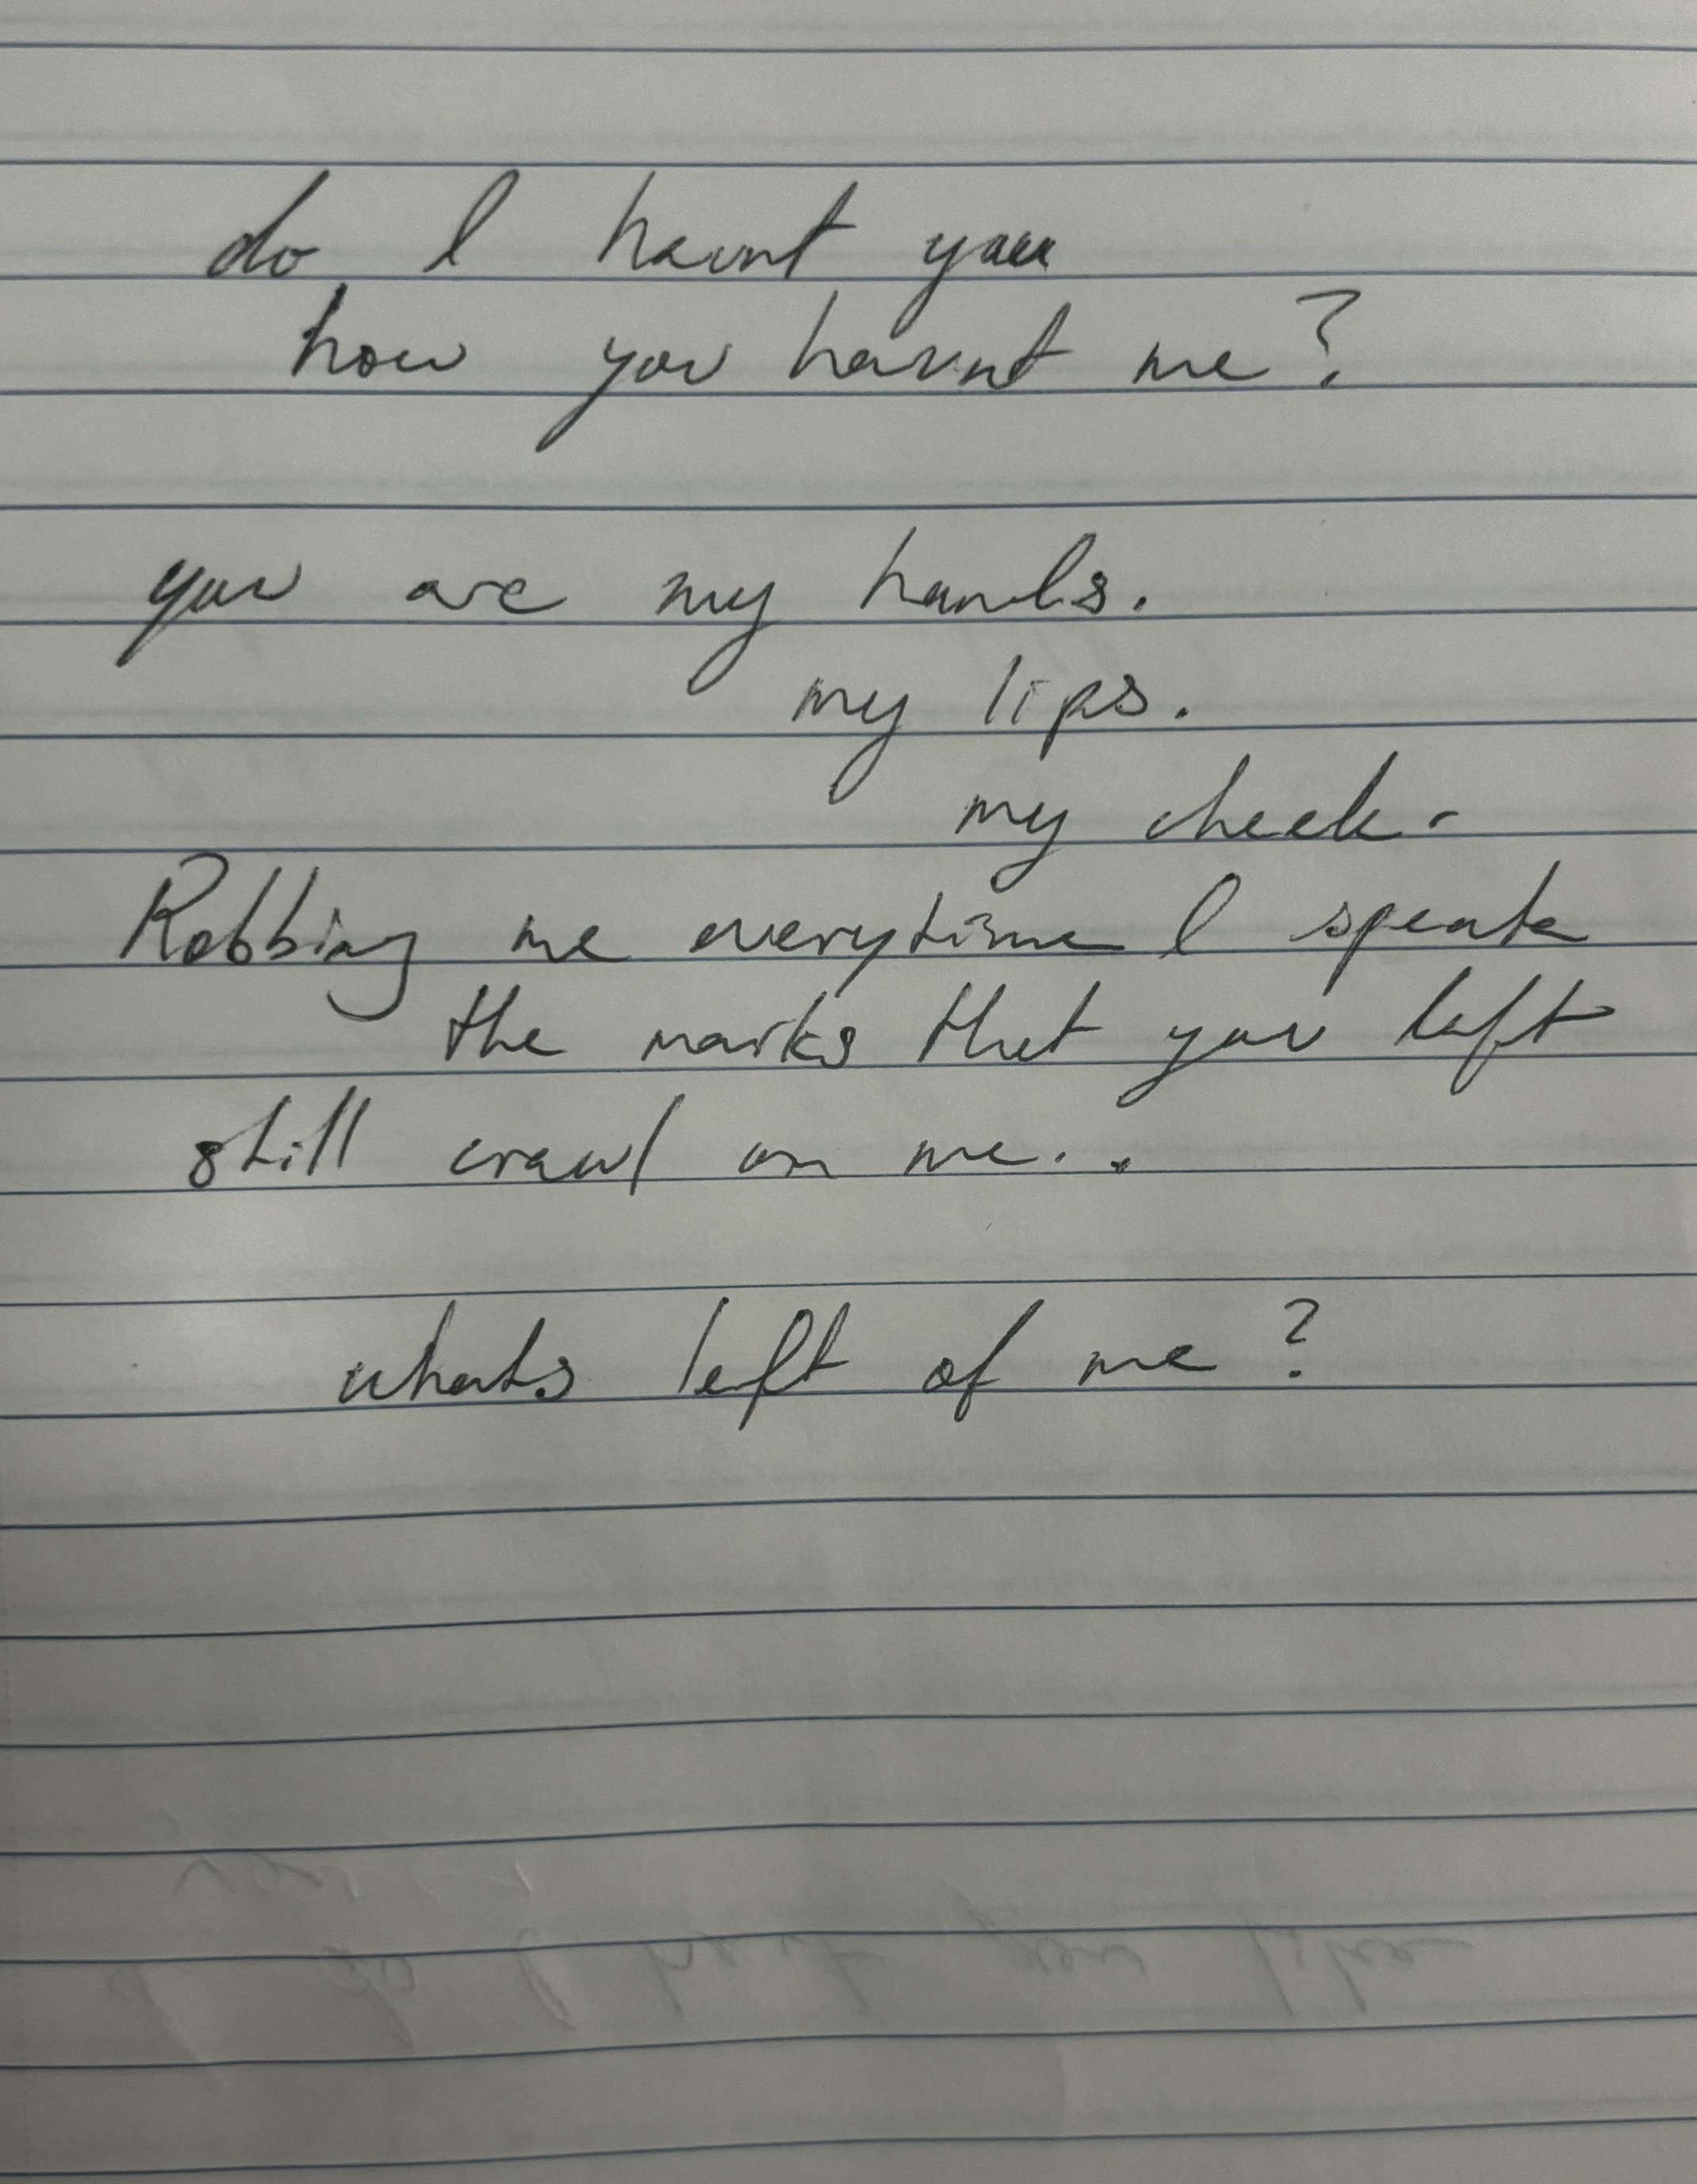 do I haunt you
how you haunt me?
you are my hands.
my lips.
my cheek.
Robbing me everytime I speak
the marks that you left
still crawl on me..
whats left of me?